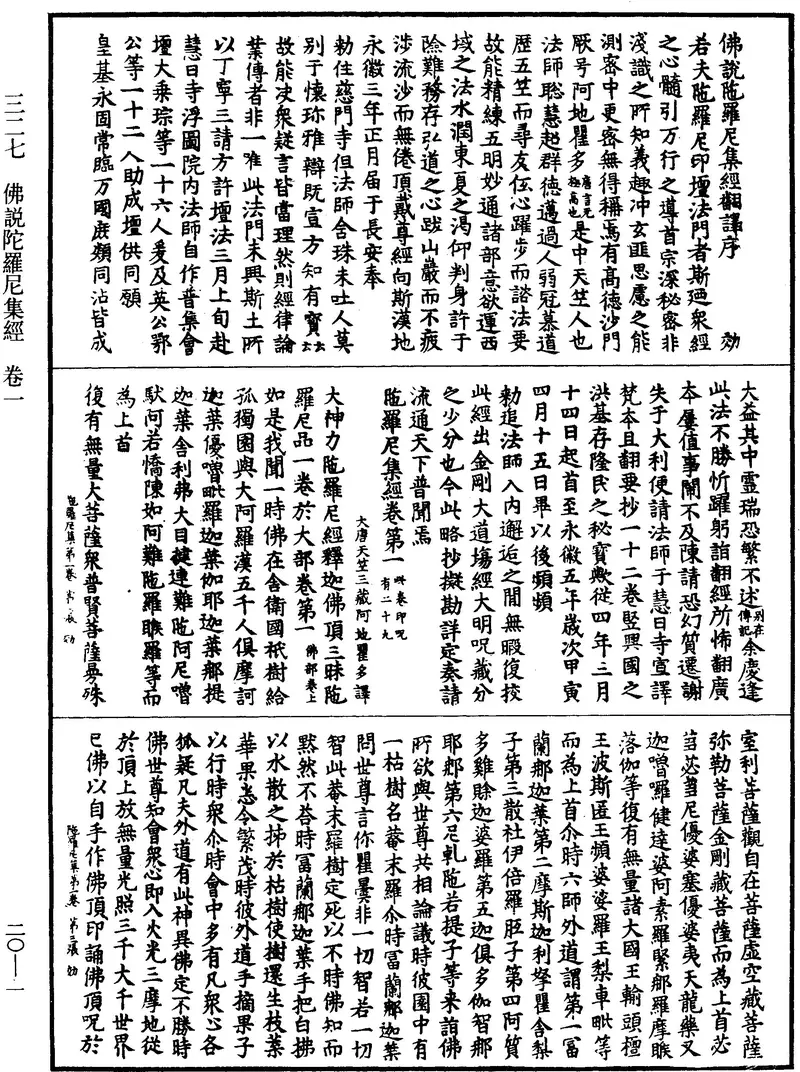 佛說陁羅尼集經翻譯序　効
若夫陁羅尼印壇法門者斯廼衆經
之心髓引万行之導首宗深秘密非
淺識之所知義趣冲玄匪思慮之能
測密中更密無得稱焉有高德沙門
厥号阿地瞿多唐言无極高也是中天竺人也
法師聡慧超群德邁過人弱冠慕道
歷五竺而尋友伝心躍步而諮法要
故能精練五明妙通諸部意欲運西
域之法水潤東夏之渴仰判身許于
險難務存弘道之心跋山巖而不疲
涉流沙而無倦頂戴尊經向斯漢地
永徽三年正月届于長安奉
勅住慈門寺但法師舍珠未吐人莫
别于懷珎雅辯既宣方知有寶云云
故能決衆疑言皆當理然則經律論
業傳者非一唯此法門未興斯土所
以丁寧三請方許壇法三月上旬赴
慧日寺浮圖院内法師自作普集會
壇大乘琮等一十六人爰及英公鄂
公等一十二人助成壇供同願
皇基永固常臨万國庶類同沾皆成
大益其中靈瑞恐繁不述别在傳記余慶逢
此法不勝忻躍躬詣翻經所怖翻廣
本屢值事閙不及陳請恐幻質遷謝
失于大利便請法師于慧日寺宣譯
梵本且翻要抄一十二卷竪興國之
洪基存隆民之秘寶歟從四年三月
十四日起首至永徽五年歲次甲寅
四月十五日畢以後頻頻
勅追法師入内邂逅之閒無暇復挍
此經出金剛大道場經大明呪藏分
之少分也今此略抄擬勘詳定奏請
流通天下普聞焉
陁羅尼集經卷第一此卷印呪有二十九
大唐天竺三藏阿地瞿多譯
大神力陁羅尼經釋迦佛頂三昧陁
羅尼品一卷於大部卷第一佛部卷上
如是我聞一時佛在舍衛國祇樹給
孤獨園與大阿羅漢五千人俱摩訶
迦葉優嚕毗羅迦葉伽耶迦葉那提
迦葉舍利弗大目揵連難陁阿尼嚕
馱阿若憍陳如阿難陁羅睺羅等而
為上首
復有無量大菩薩衆普賢菩薩曼殊
陁羅尼集第一卷　第二張　効
室利菩薩觀自在菩薩虛空藏菩薩
弥勒菩薩金剛藏菩薩而為上首苾
芻苾芻尼優婆塞優婆夷天龍藥叉
迦嚕囉健達婆阿素羅緊那羅摩睺
洛伽等復有無量諸大國王輸頭檀
王波斯匿王頻婆娑羅王梨車毗等
而為上首尒時六師外道謂第一冨
蘭那迦葉第二摩斯迦利拏瞿舍梨
子第三散社伊倍羅胝子第四阿質
多雞賒迦婆羅第五迦俱多伽智那
耶那第六尼軋陁若提子等来詣佛
所欲與世尊共相論議時彼園中有
一枯樹名菴末羅尒時冨蘭那迦葉
問世尊言你瞿曇非一切智若一切
智此菴末羅樹定死以不時佛知而
黙然不荅時冨蘭那迦葉手把白拂
以水散之拂於枯樹使樹還生枝葉
華果悉令繁茂時彼外道手摘果子
以行時衆尒時會中多有凡衆心各
狐疑凡夫外道有此神異佛定不勝時
佛世尊知會衆心即入火光三摩地從
於頂上放無量光照三千大千世界
已佛以自手作佛頂印誦佛頂呪於
陁羅尼集第一卷　第三張　効
三二七　佛説陀羅尼集經　卷一
二〇—一